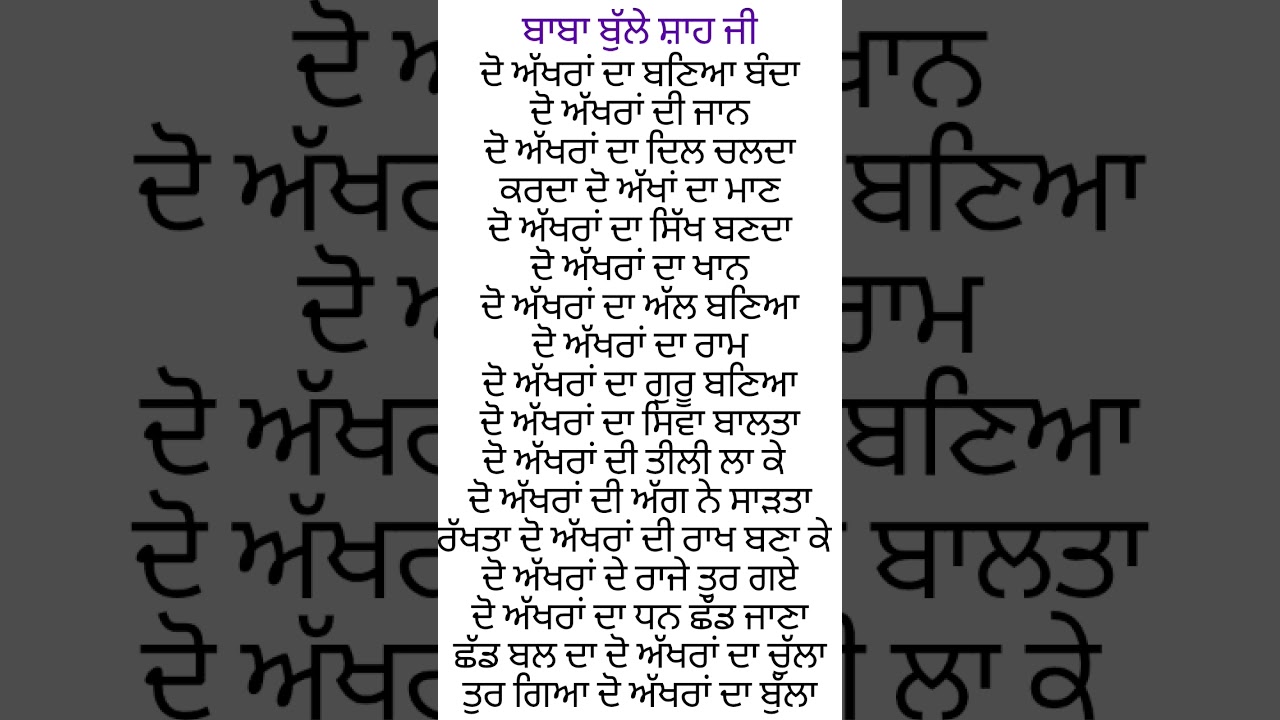 ਬਾਬਾ ਬੁੱਲੇ ਸ਼ਾਹ ਜੀ
ਦੋ ਅੱਖਰਾਂ ਦਾ ਬਣਿਆ ਬੰਦਾ
ਦੋ ਅੱਖਰਾਂ ਦੀ ਜਾਨ
ਦੋ ਅੱਖਰਾਂ ਦਾ ਦਿਲ ਚਲਦਾ
ਕਰਦਾ ਦੋ ਅੱਖਾਂ ਦਾ ਮਾਣ
ਦੋ ਅੱਖਰਾਂ ਦਾ ਸਿੱਖ ਬਣਦਾ
ਦੋ ਅੱਖਰਾਂ ਦਾ ਖਾਨ
ਦੋ ਅੱਖਰਾਂ ਦਾ ਅੱਲ ਬਣਿਆ
ਦੋ ਅੱਖਰਾਂ ਦਾ ਰਾਮ
ਦੋ ਅੱਖਰਾਂ ਦਾ ਗੁਰੂ ਬਣਿਆ
ਦੋ ਅੱਖਰਾਂ ਦਾ ਸਿਵਾ ਬਾਲਤਾ
ਦੋ ਅੱਖਰਾਂ ਦੀ ਤੀਲੀ ਲਾ ਕੇ
ਦੋ ਅੱਖਰਾਂ ਦੀ ਅੱਗ ਨੇ ਸਾੜਤਾ
ਰੱਖਤਾ ਦੋ ਅੱਖਰਾਂ ਦੀ ਰਾਖ ਬਣਾ ਕੇ
ਦੋ ਅੱਖਰਾਂ ਦੇ ਰਾਜੇ ਤੁਰ ਗਏ
ਦੋ ਅੱਖਰਾਂ ਦਾ ਧਨ ਛੱਡ ਜਾਣਾ
ਛੱਡ ਬਲ ਦਾ ਦੋ ਅੱਖਰਾਂ ਦਾ ਚੁੱਲਾ
ਤੁਰ ਗਿਆ ਦੋ ਅੱਖਰਾਂ ਦਾ ਬੁੱਲਾ